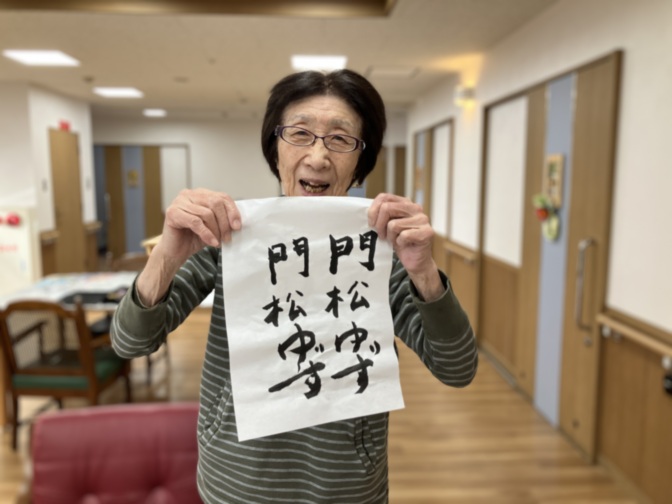 門松ゆず
門松ゆず